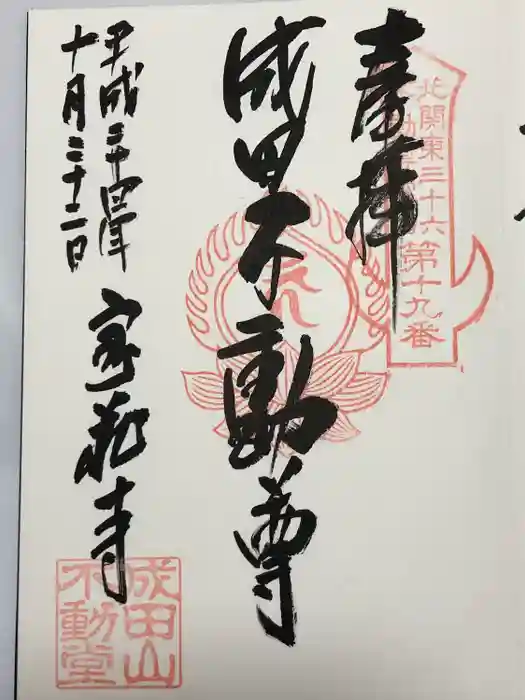 奉拝
北関東三十六
第十九番
成田不動尊
平成二十四年
十月二十二日
宝蔵寺
成田山
不動堂